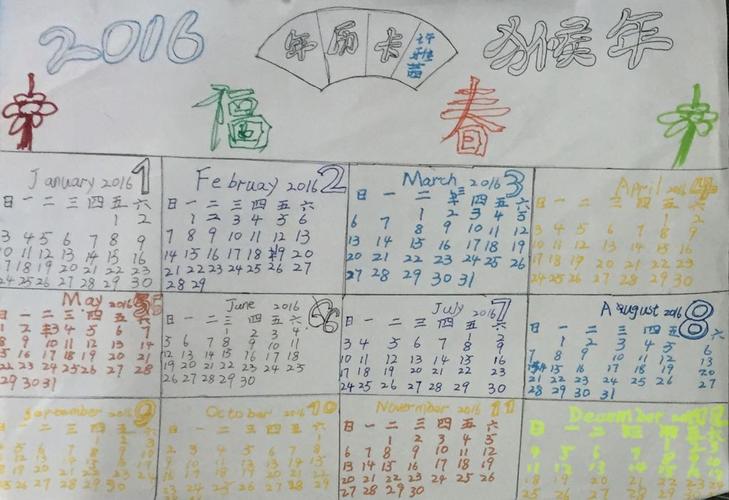 2016
年历卡
猴年
福
春
January 2016 1
日 一 二 三 四 五 六
1 2
3 4 5 6 7 8 9
10 11 12 13 14 15 16
17 18 19 20 21 22 23
24 25 26 27 28 29 30
Februay 2016 2
日 一 二 三 四 五 六
1 2 3 4 5 6
7 8 9 10 11 12 13
14 15 16 17 18 19 20
21 22 23 24 25 26 27
28 29
March 2016 3
日 一 二 三 四 五 六
1 2 3 4 5
6 7 8 9 10 11 12
13 14 15 16 17 18 19
20 21 22 23 24 25 26
27 28 29 30 31
April 2016 4
日 一 二 三 四 五 六
1 2
3 4 5 6 7 8 9
10 11 12 13 14 15 16
17 18 19 20 21 22 23
24 25 26 27 28 29 30
May 2016 5
日 一 二 三 四 五 六
1 2 3 4 5 6 7
8 9 10 11 12 13 14
15 16 17 18 19 20 21
22 23 24 25 26 27 28
29 30 31
June 2016 6
日 一 二 三 四 五 六
1 2 3 4
5 6 7 8 9 10 11
12 13 14 15 16 17 18
19 20 21 22 23 24 25
26 27 28 29 30
July 2016 7
日 一 二 三 四 五 六
1 2
3 4 5 6 7 8 9
10 11 12 13 14 15 16
17 18 19 20 21 22 23
24 25 26 27 28 29 30
August 2016 8
日 一 二 三 四 五 六
1 2 3 4 5 6
7 8 9 10 11 12 13
14 15 16 17 18 19 20
21 22 23 24 25 26 27
28 29 30 31
September 2016 9
日 一 二 三 四 五 六
1 2 3
4 5 6 7 8 9 10
11 12 13 14 15 16 17
18 19 20 21 22 23 24
October 2016 10
日 一 二 三 四 五 六
1
2 3 4 5 6 7 8
9 10 11 12 13 14 15
16 17 18 19 20 21 22
23 24 25 26 27 28 29
Novermber 2016 11
日 一 二 三 四 五 六
1 2 3 4 5
6 7 8 9 10 11 12
13 14 15 16 17 18 19
20 21 22 23 24 25 26
27 28 29 30
December 2016 12
日 一 二 三 四 五 六
1 2 3
4 5 6 7 8 9 10
11 12 13 14 15 16 17
18 19 20 21 22 23 24